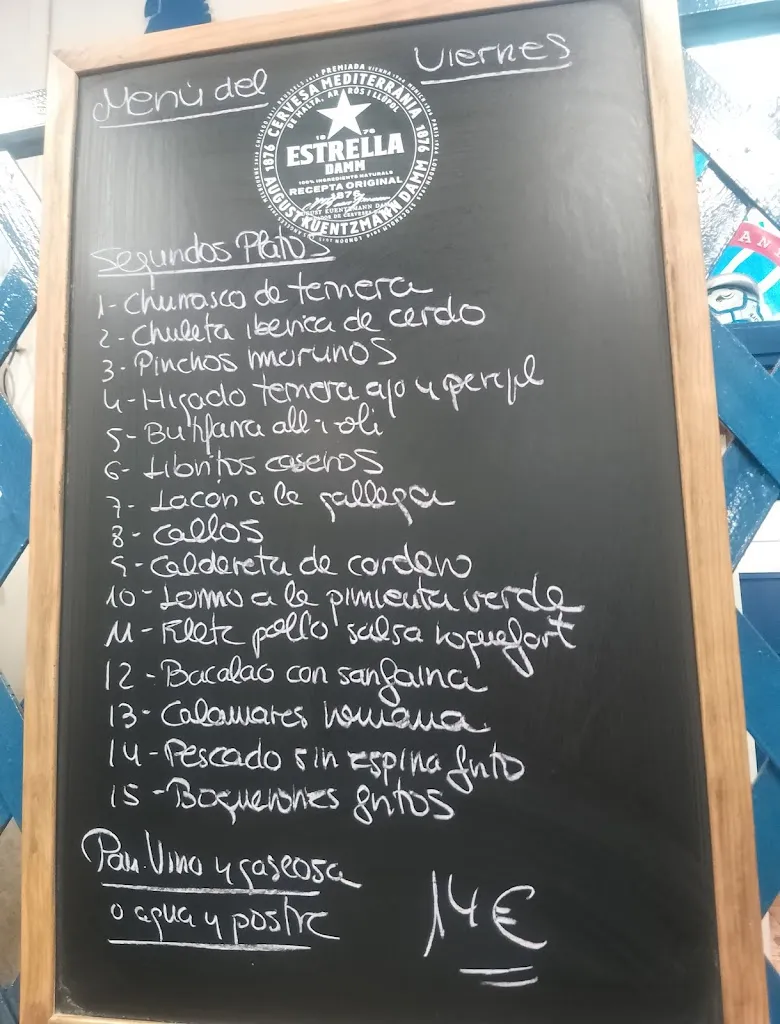 Menú del Viernes
PREMIADA
CERVESA MEDITERRÀNIA
DE MALTA, ARRÒS I LLÚPOL
1876
1876
1876
ESTRELLA
DAMM
100% INGREDIENTS NATURALS
RECEPTA ORIGINAL
1876
AUGUST KUENTZMANN DAMM
Segundos Platos
1- Churrasco de ternera
2- Chuleta iberica de cerdo
3- Pinchos morunos
4- Higado ternera ajo y perejil
5- Butifarra all-i-oli
6- Libritos caseros
7- Lacon a la gallega
8- Callos
9- Caldereta de cordero
10- Lomo a la pimienta verde
11- Filete pollo salsa roquefort
12- Bacalao con sanfaina
13- Calamares romana
14- Pescado sin espina frito
15- Boquerones fritos
Pan. Vino y gaseosa
o agua y postre
14€